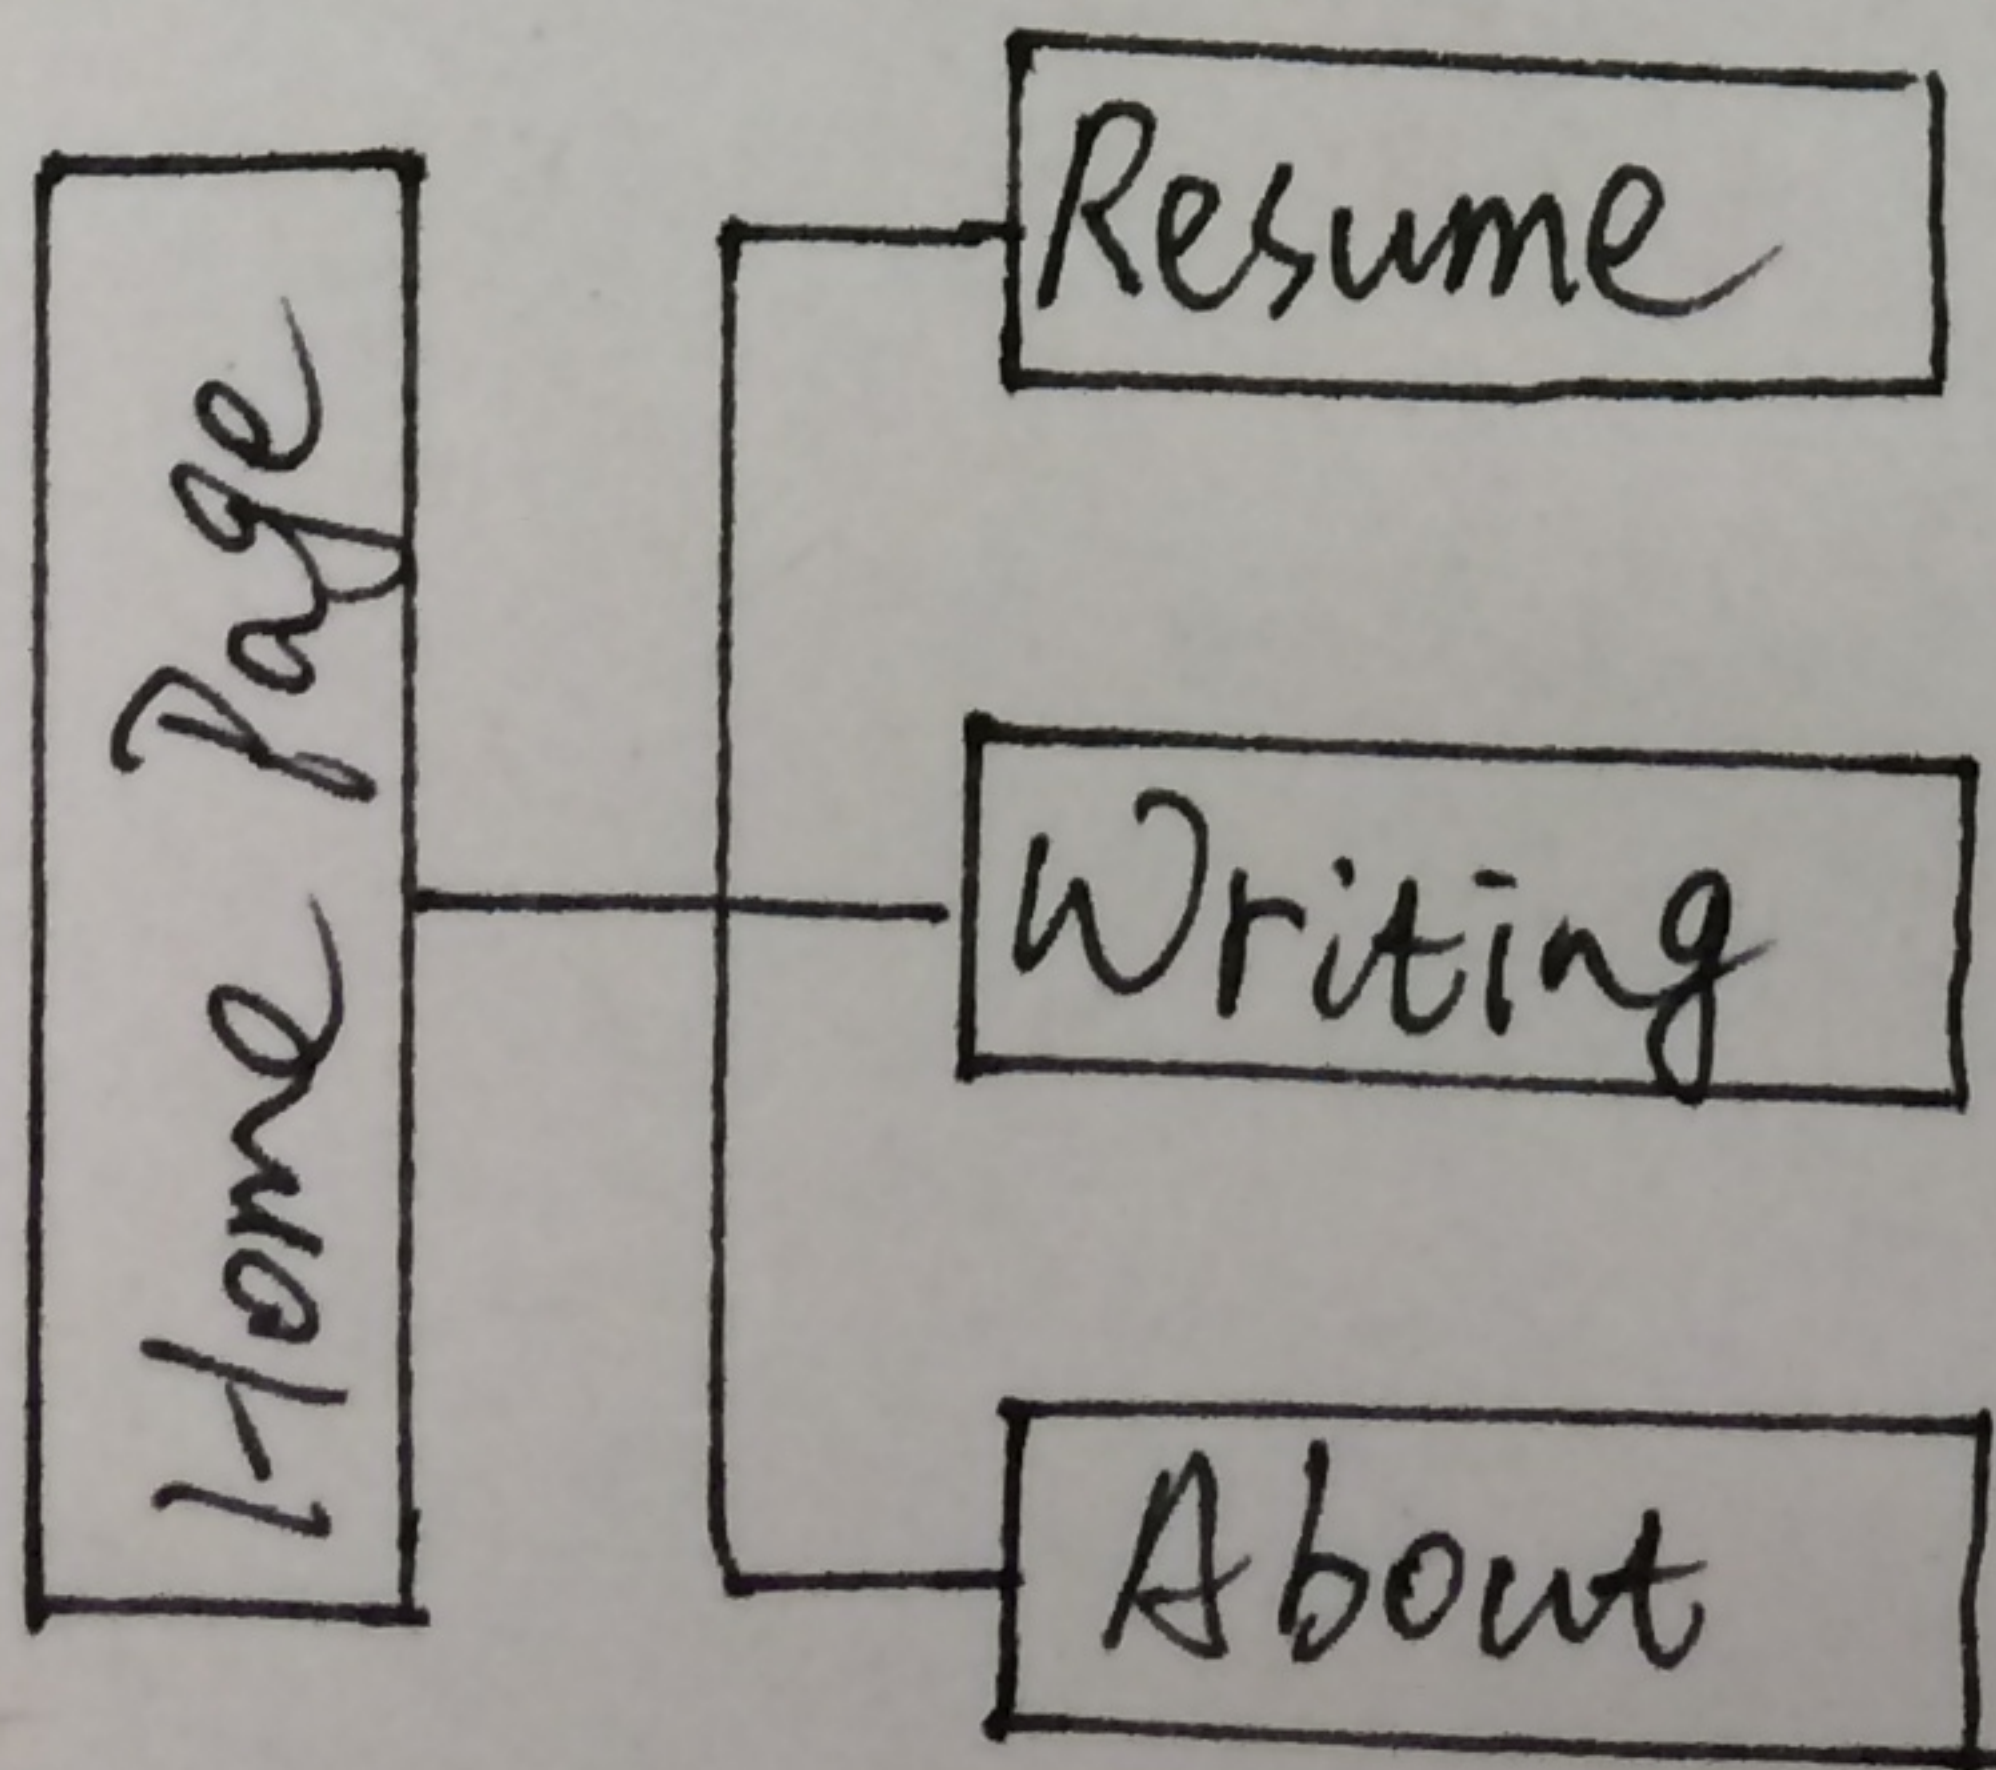 Home Page
Resume
Writing
About